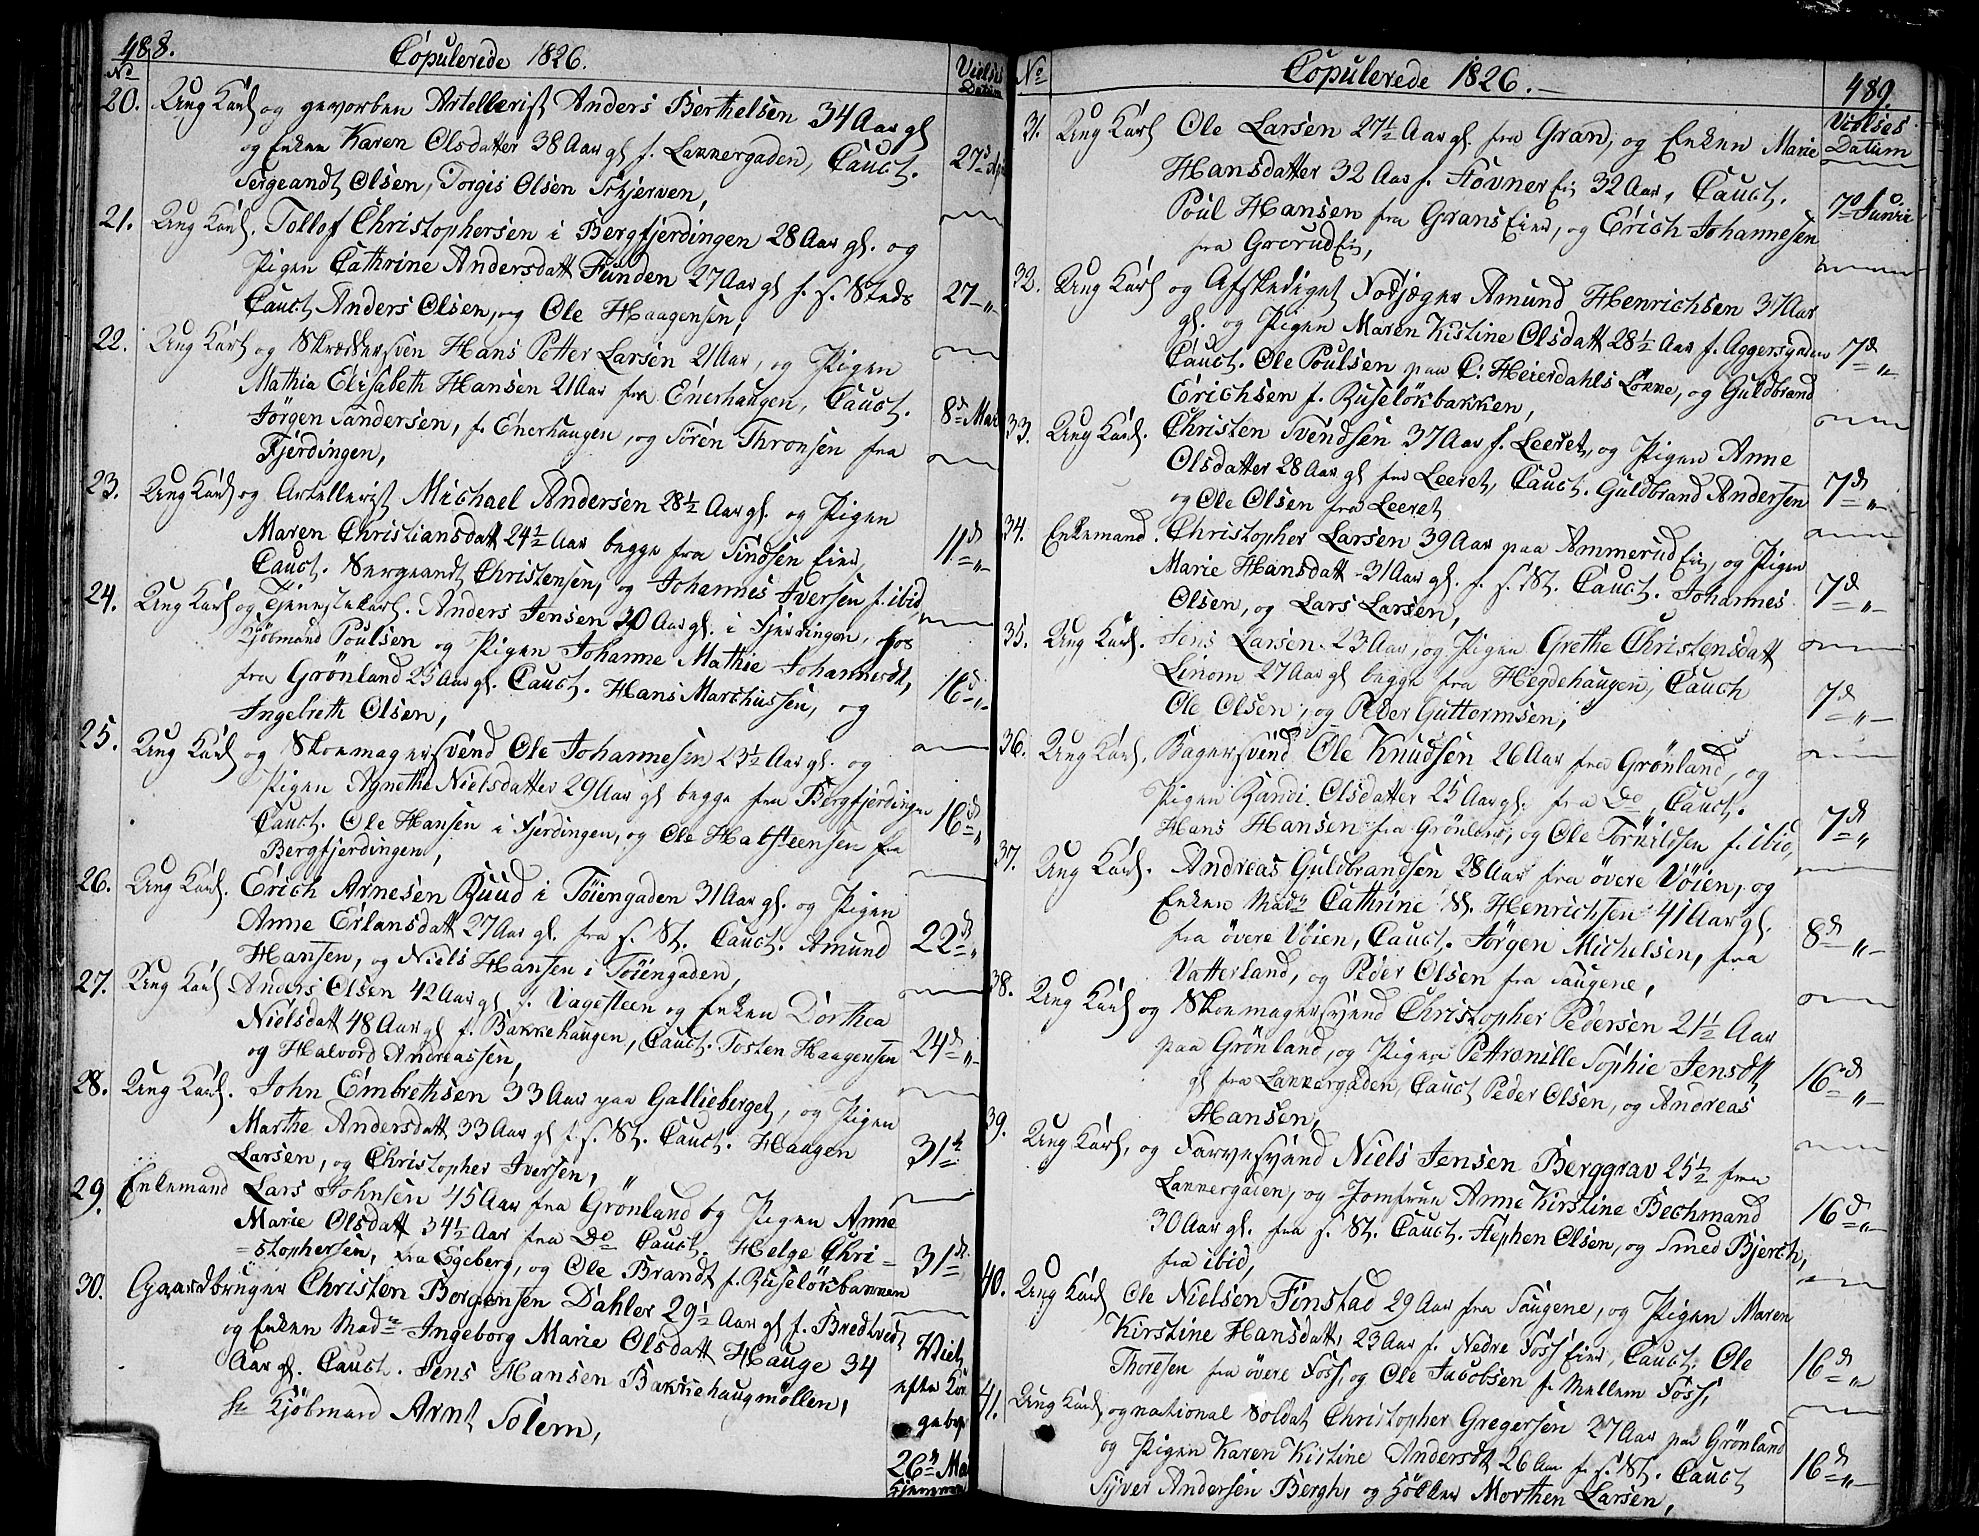 488.
Copulerede 1826.
No
Vielses
Datum
20. Ung Karl og gevorben Artellerist Anders Berthelsen 34 Aar gl
og Enken Karen Olsdatter 38 Aar gl. f. Lannergaden, Cauct.
Sergeandt Olsen, Torgis Olsen Schjerven,
27d Apr
21. Ung Karl. Tollof Christophersen i Bergfjerdingen 28 Aar gl. og
Pigen Cathrine Andersdatt Funden 27 Aar gl f. s. Steds
Cauct Anders Olsen, og Ole Haagensen,
27 – „ –
22. Ung Karl og Skræddersven Hans Petter Larsen 21 Aar, og Pigen
Mathia Elisabeth Hansen 21 Aar fra Enerhaugen, Cauct.
Jörgen Sandersen, f. Enerhaugen, og Sören Thronsen fra
Fjerdingen,
8d Mai
23. Ung Karl og Artellerist Michael Andersen 28½ Aar gl. og Pigen
Maren Christiansdatt 24½ Aar begge fra Sindsen Eier
Cauct. Sergeandt Christensen, og Johannes Iversen f. ibid
11d – „ –
24. Ung Karl og Tjenestekarl. Anders Jensen 30 Aar gl. i Fjerdingen, hos
Kjöbmand Poulsen og Pigen Johanne Mathie Johannesdt,
fra Grönland 25 Aar gl. Cauct. Hans Marthissen, og
Ingebreth Olsen,
16d – „ –
25. Ung Karl og Skoemagersvend Ole Johannesen 23½ Aar gl. og
Pigen Agnethe Nielsdatter 29 Aar gl begge fra Bergfjerdingen
Cauct. Ole Hansen i Fjerdingen, og Ole Halsteensen fra
Bergfjerdingen,
16d „
26. Ung Karl. Erich Arnesen Ruud i Töiengaden 31 Aar gl. og Pigen
Anne Erlansdatt 27 Aar gl. fra s. St. Cauct. Amund
Hansen, og Niels Hansen i Töiengaden,
22d „
27. Ung Karl Anders Olsen 42 Aar gl f. Vagesteen og Enken Dorthea
Nielsdatt 48 Aar gl f. Bakkehaugen, Cauct. Tosten Haagensen
og Halvord Andreassen,
24d – „ –
28. Ung Karl. John Embrethsen 33 Aar paa Gallieberget, og Pigen
Marthe Andersdatt 33 Aar gl f. s. St. Cauct. Haagen
Larsen, og Christopher Iversen,
31d
29. Enkemand Lars Johnsen 45 Aar fra Grönland og Pigen Anne
Marie Olsdatt 34½ Aar fra Do Cauct. Helge Chri=
=stophersen, fra Egeberg, og Ole Brandt f. Ruselökbakken
31d
30. Gaardbruger Christen Borgensen Dahler 29½ Aar gl f. Bredtvedt
og Enken Made Ingeborg Marie Olsdatt Hauge 34
Aar gl. Cauct. Jens Hansen Bakkehaugmöllen,
Hr Kjöbmand Arnt Solem,
Viet
efter Kon
gebr
26d Mai
hjemme
No
Copulerede 1826. –
489.
Vielses
Datum
31. Ung Karl Ole Larsen 27½ Aar gl. fra Gran, og Enken Marie
Hansdatter 32 Aar f. Stovner Ei 32 Aar, Cauct.
Poul Hansen fra Grans Eier, og Erich Johannesen
fra Grorud Ei,
7d Junii
32. Ung Karl og Afskediget Fodjæger Amund Henrichsen 37 Aar
gl. og Pigen Maren Kistine Olsdatt 28½ Aar f. Aggersgaden
Cauct. Ole Poulsen paa C: Heierdahls Lökke, og Guldbrand
Erichsen f. Ruselökbakken,
7d „
33. Ung Karl. Christen Svendsen 37 Aar f. Leeret, og Pigen Anne
Olsdatter 28 Aar gl fra Leeret, Cauct. Guldbrand Andersen
og Ole Olsen fra Leeret
7d – „ –
34. Enkemand. Christopher Larsen 39 Aar paa Ammerud Ei, og Pigen
Marie Hansdatt 31 Aar gl. f. s. St. Cauct. Johannes
Olsen, og Lars Larsen,
7d – „ –
35. Ung Karl. Jens Larsen 23 Aar, og Pigen Grethe Christensdatt
Linom 27 Aar gl begge fra Hegdehaugen, Cauct
Ole Olsen, og Peder Guttormsen,
7d – „ –
36. Ung Karl. Bagersvend Ole Knudsen 26 Aar fra Grönland, og
Pigen Randi Olsdatter 25 Aar gl. fra Do, Cauct.
Hans Hansen fra Grönland, og Ole Tornildsen f. ibid,
7d „
37. Ung Karl. Andreas Guldbrandsen 28 Aar fra övere Vöien, og
Enken Made Cathrine S. Henrichsen 41 Aar gl.
fra övere Vöien, Cauct. Jörgen Michelsen, fra
Vatterland, og Peder Olsen fra Saugene,
8d – „ –
38. Ung Karl og Skoemagersvend Christopher Pedersen 21½ Aar
paa Grönland, og Pigen Pettronille Sophie Jensdtt
gl fra Lannergaden, Cauct Peder Olsen, og Andreas
Hansen,
16d – „ –
39. Ung Karl, og Farvesvend Niels Jensen Berggrav 25½ fra
Lannergaden, og Jomfrue Anne Kirstine Bechmand
30 Aar gl. fra s. St. Cauct. Stephen Olsen, og Smed Bjerch,
fra ibid,
16d – „ –
40. Ung Karl Ole Nielsen Finstad 29 Aar fra Saugene, og Pigen Maren
Kirstine Hansdatt, 23 Aar f. Nedre Foss Eier, Cauct. Ole
Thoresen fra övere Foss, og Ole Jacobsen f. Mellem Foss,
16d – „
41. Ung Karl, og national Soldat Christopher Gregersen 37 Aar paa Grönland
og Pigen Karen Kistine Andersdtt 26 Aar f. s. St. Cauct
Syver Andersen Bergh, og Höcker Morthen Larsen,
16d – „ –